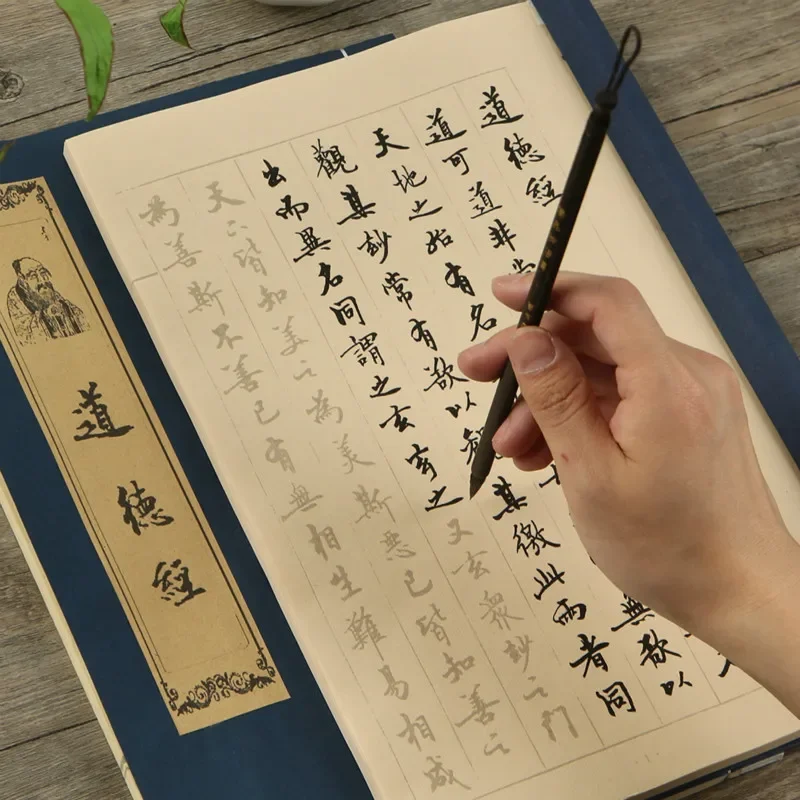 道德經
道可道非
天地之始有名
無欲以
觀其妙常有欲以觀其徼此兩者同
出而異名同謂之玄玄之又玄衆妙之門
天下皆知美之為美斯惡已皆知善之
為善斯不善已有無相生難易相成
道德經